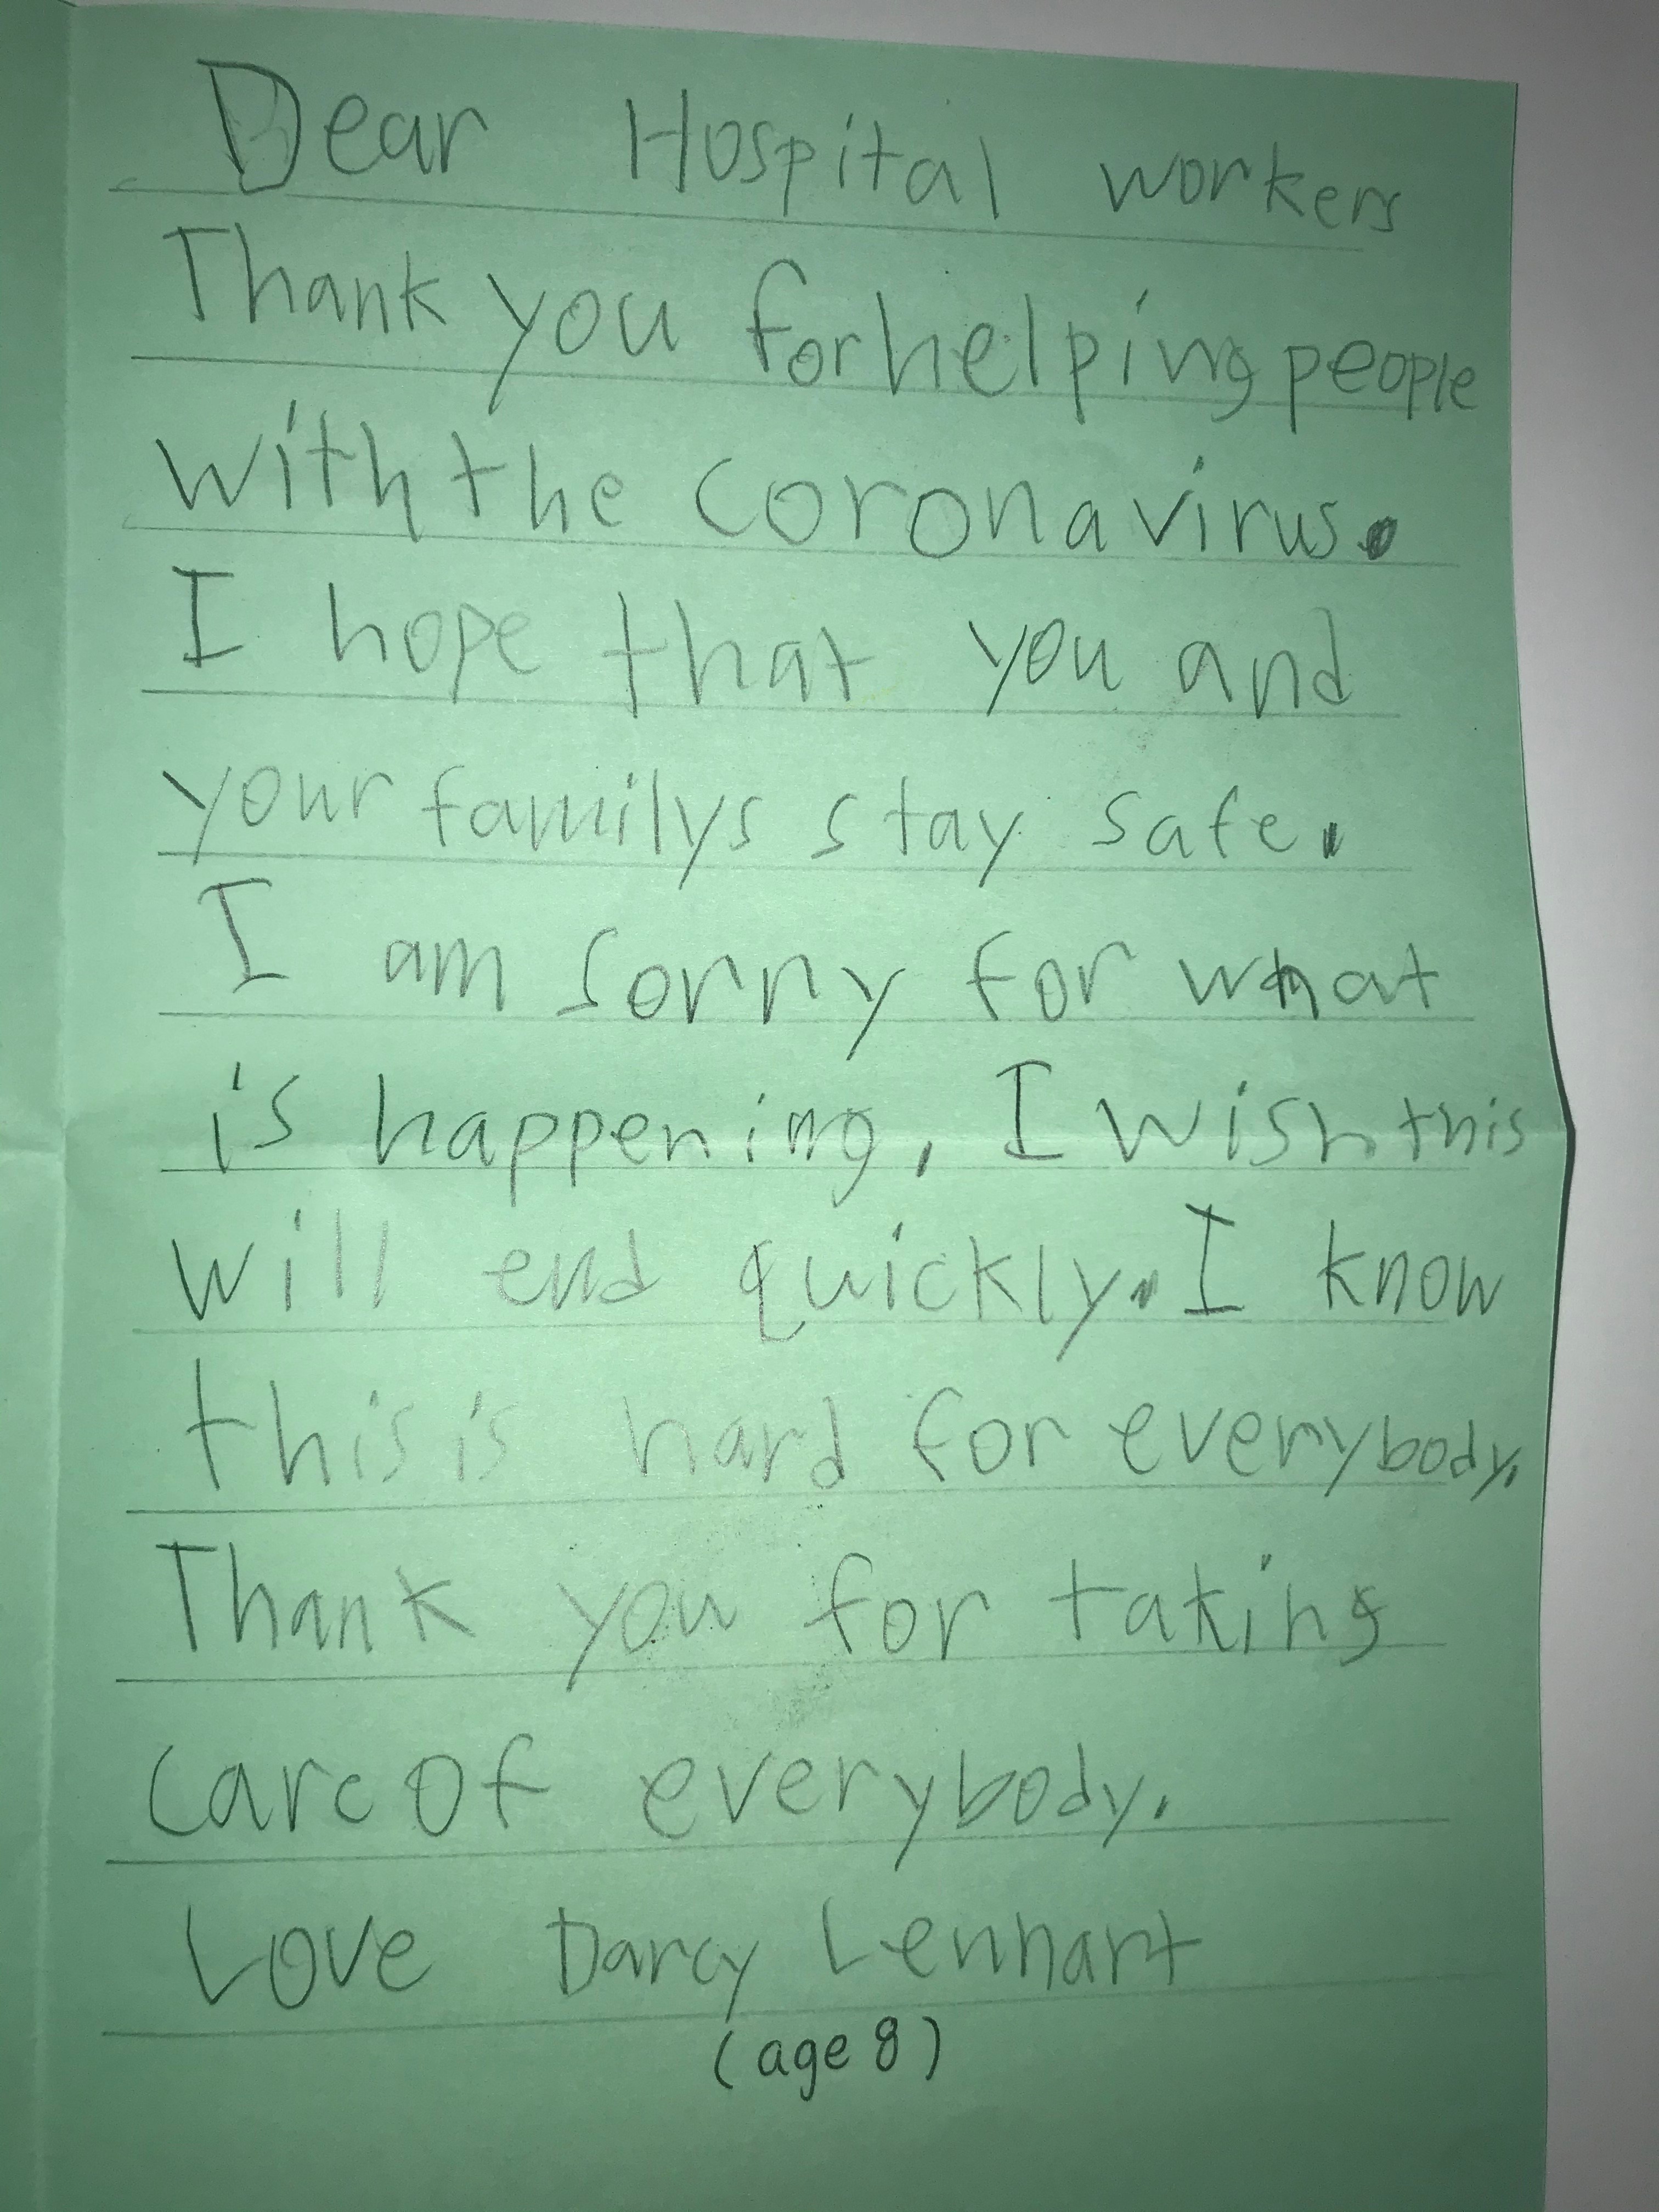 Dear Hospital workers
Thank you for helping people
with the coronavirus.
I hope that you and
your familys stay safe.
I am sorry for what
is happening. I wish this
will end quickly. I know
this is hard for everybody.
Thank you for taking
care of everybody.
Love Darcy Lennart
(age 8)